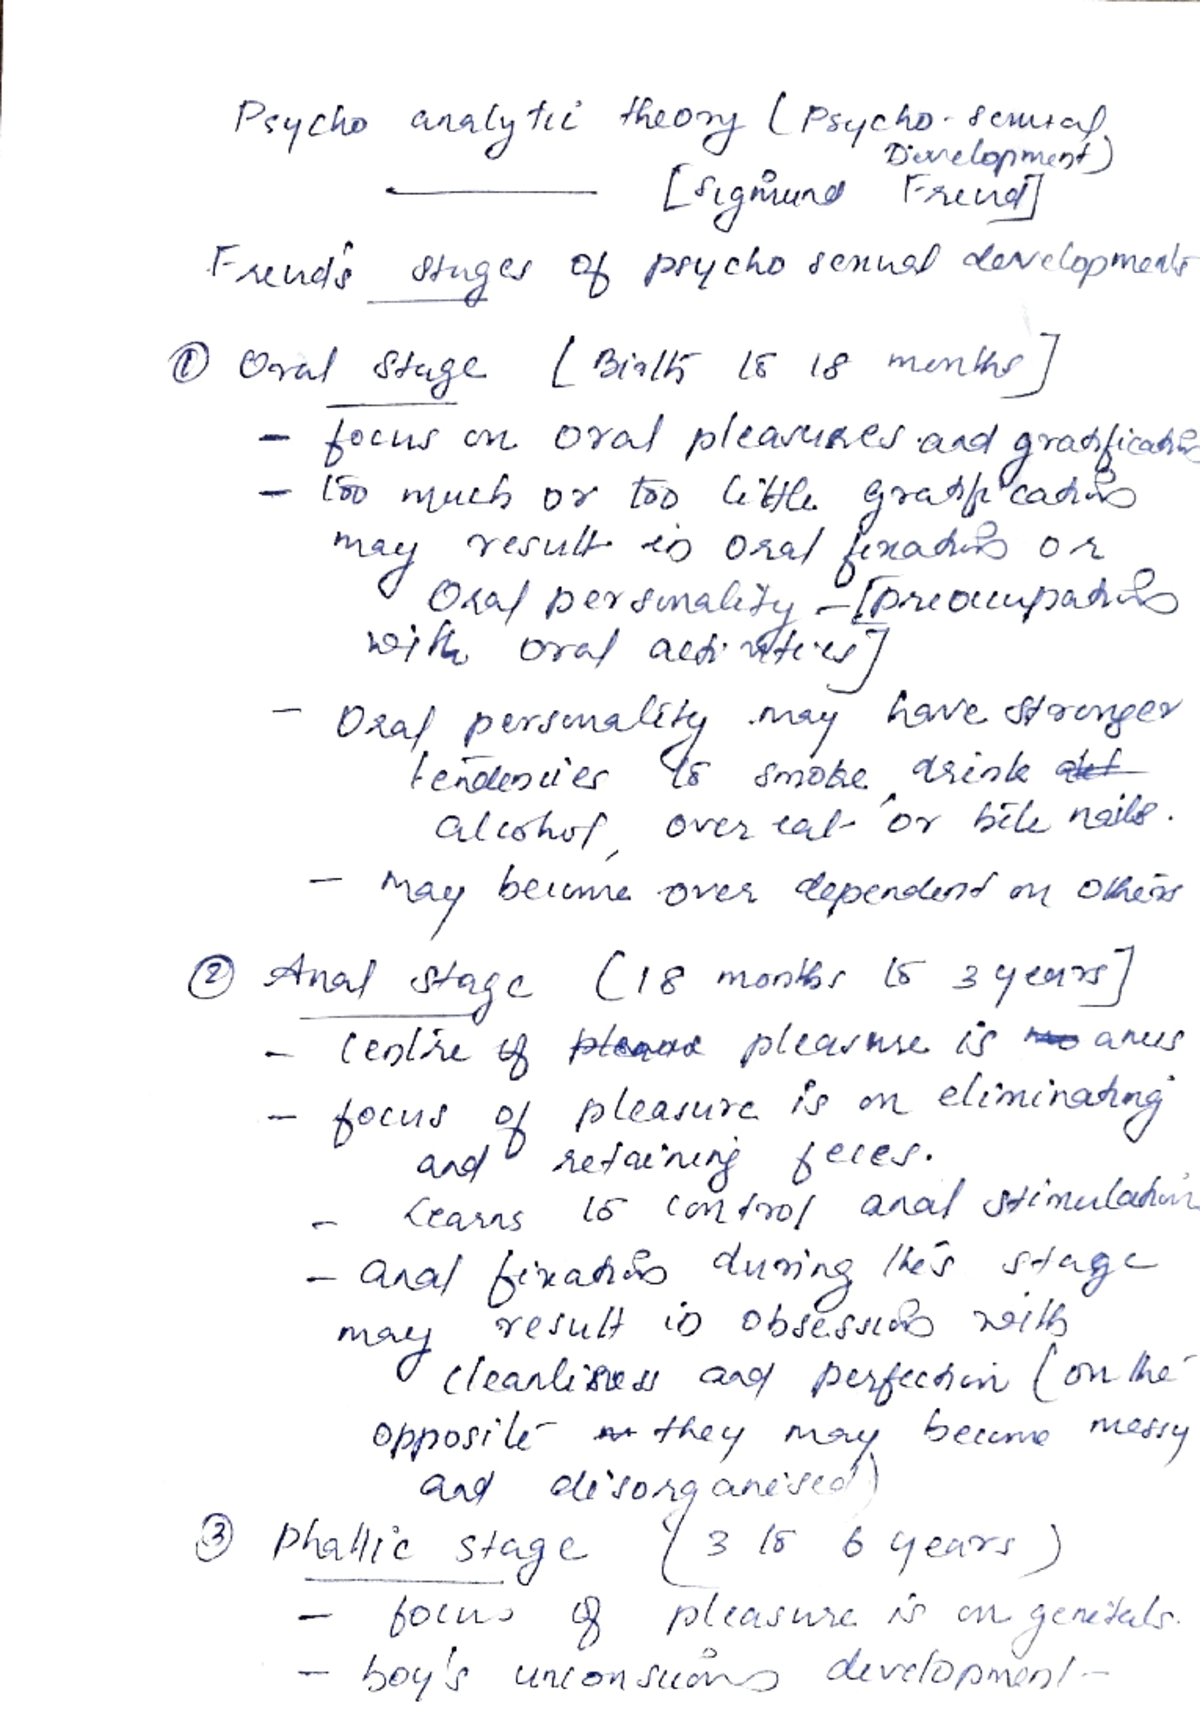 Psycho analytic theory (Psycho-sexual
Development)
[Sigmund Freud]
Freud's stages of psycho sexual developments
① Oral stage [Birth to 18 months]
- focus on oral pleasures and gratification
- too much or too little gratification
may result in oral fixation or
Oral personality - [preoccupation
with oral activities]
- Oral personality may have stronger
tendencies to smoke, drink
alcohol, over eat or bite nails.
- may become over dependent on others
② Anal stage (18 months to 3 years]
- centre of pleasure is anus
- focus of pleasure is on eliminating
and retaining feces.
- Learns to control anal stimulation
- anal fixation during this stage
may result in obsession with
cleanliness and perfection (on the
opposite they may become messy
and disorganised)
③ Phallic stage (3 to 6 years)
- focus of pleasure is on genitals.
- boy's unconscious development -